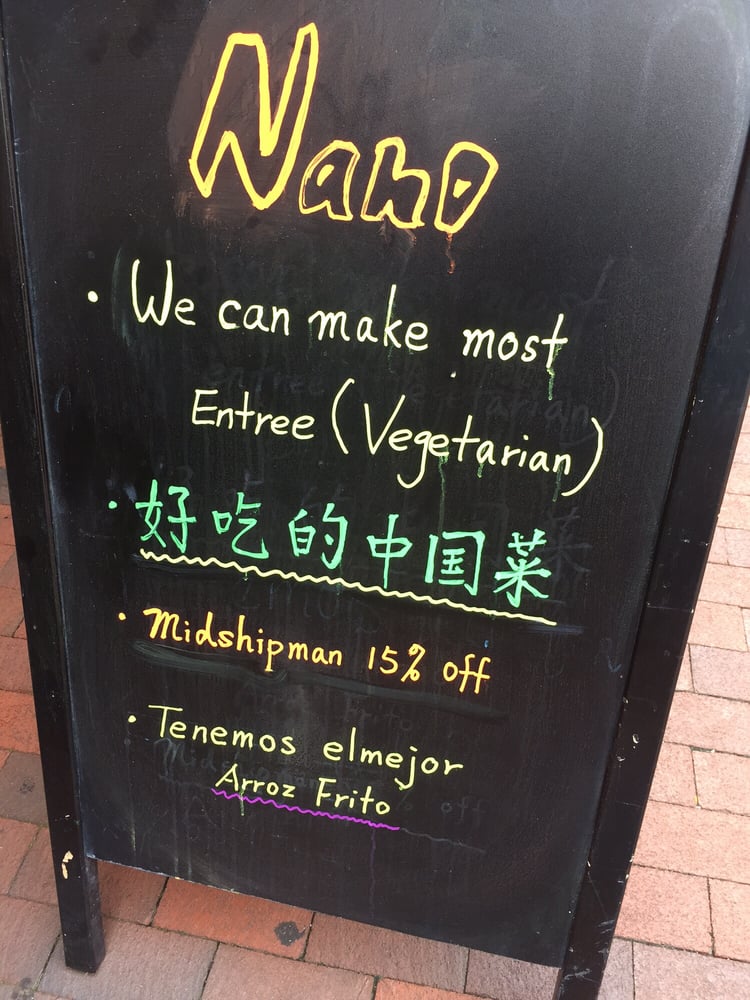 Nano
• We can make most
Entree (Vegetarian)
• 好吃的中国菜
• Midshipman 15% off
• Tenemos elmejor
Arroz Frito